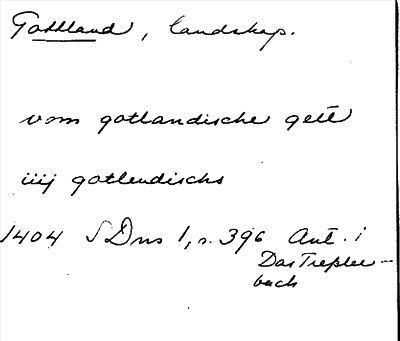 Gottland, landskap.
vom gotlandische gelt
iiij gotlendischs
1404 SDns 1, s. 396 Ant. i
Das Tressler-
buch